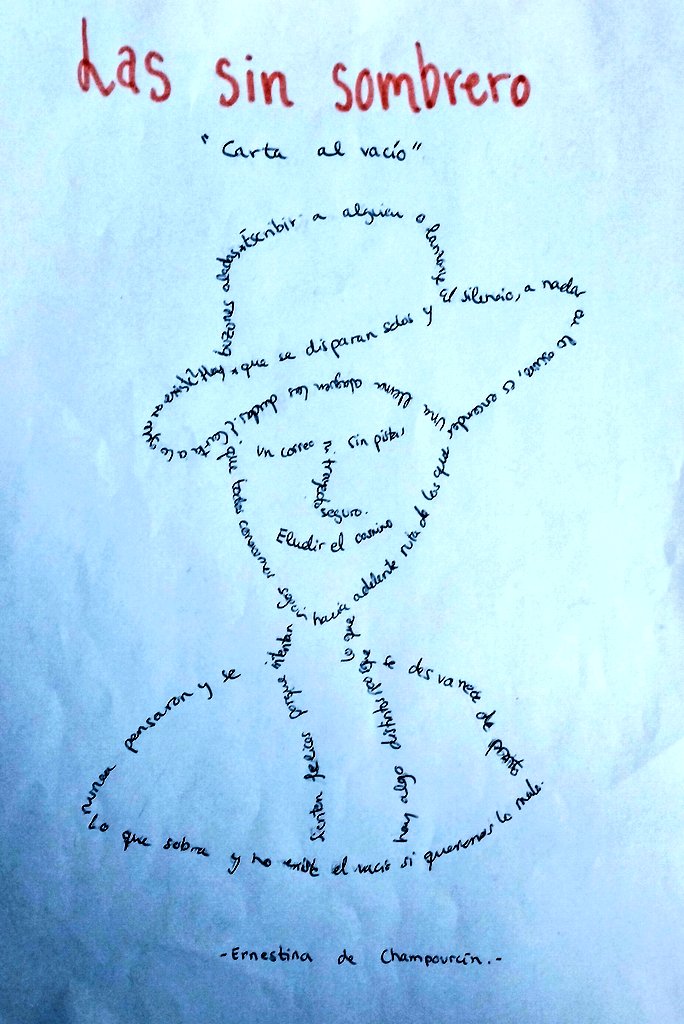 Las sin sombrero
"Carta al vacío"
Escribir a alguien o
El silencio, a nadar
es encender
una llama
alaguen las dudas
¿Carta a lo
que no existe? Hay
buzones alados
que se disparan solos y
Un correo sin pistas,
un trayecto
seguro.
Eludir el camino
que todos conocemos
seguir
hacia adelente ruta de los que
nunca pensaron y se
sienten felices porque intentan
lo que
hay algo distinto porque
se desvanece de
lo que sobra y no existe el vacío si queremos lo
-Ernestina de Champourcín.-